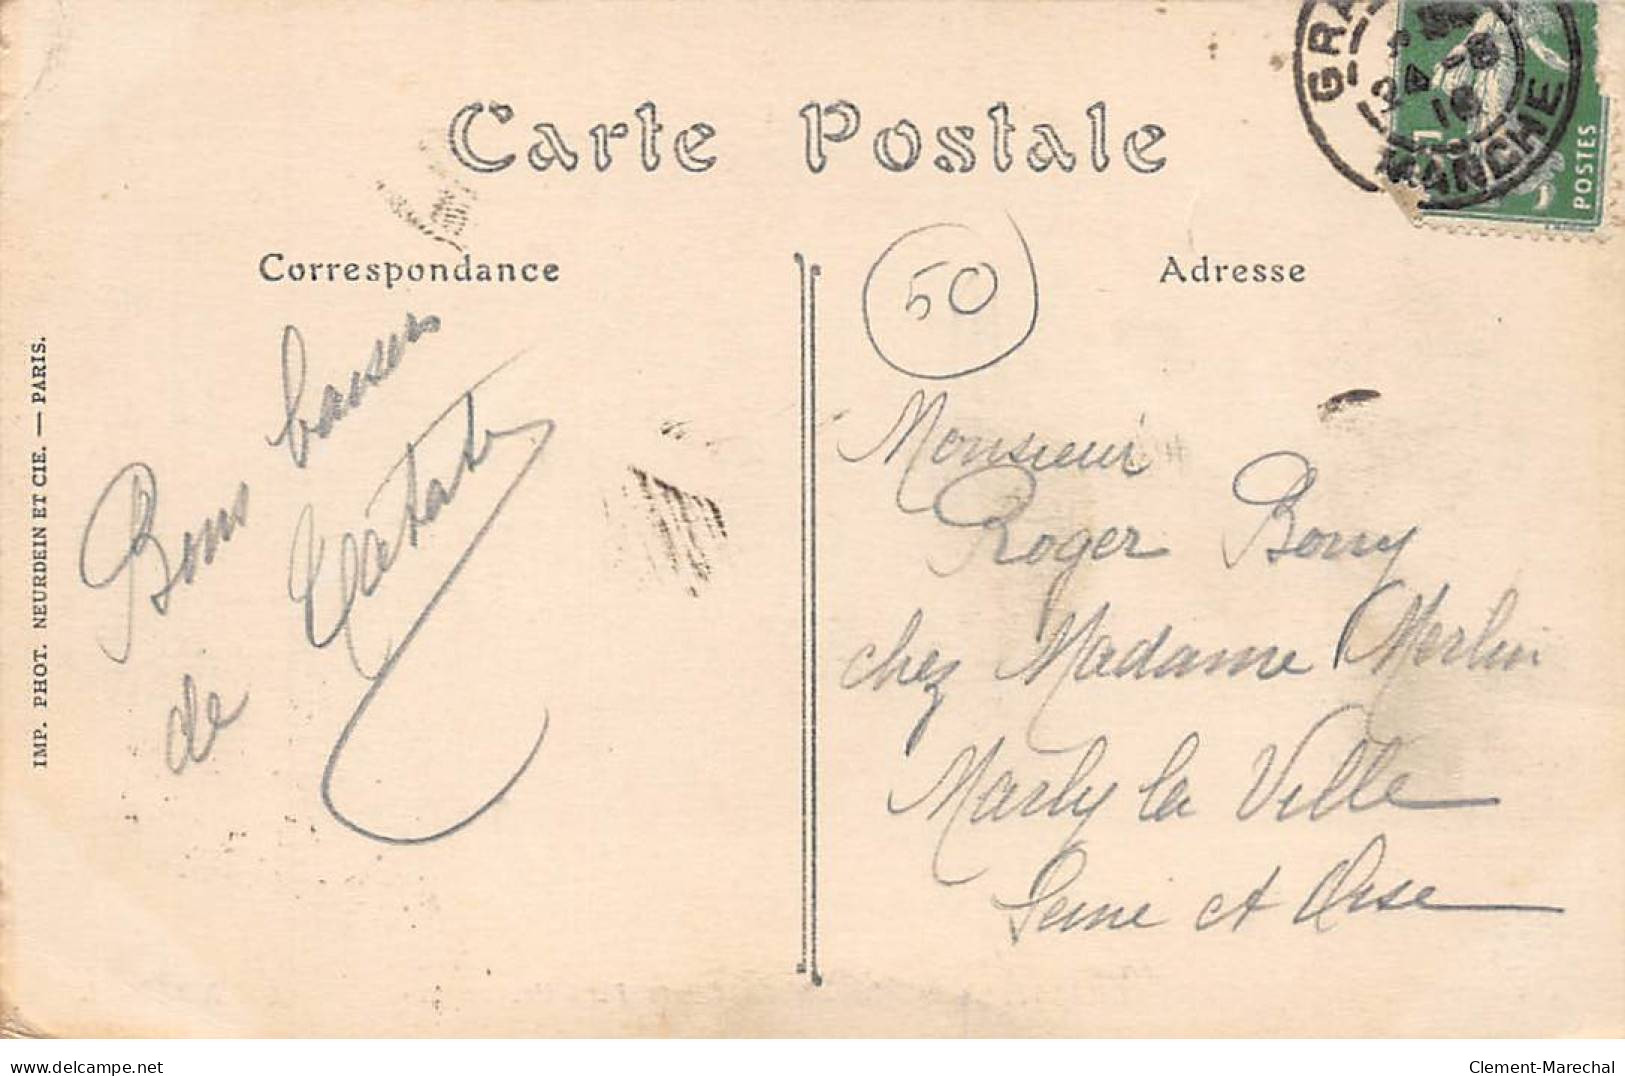 Carte Postale
GRA
24 -8
16
MANCHE
POSTES
Correspondance
Adresse
50
Bons baisers
de
Monsieur
Roger Bony
chez Madame Merlin
Marly la Ville
Seine et Oise
IMP. PHOT. NEURDEIN ET CIE. — PARIS.
delcampe.net
Clement-Marechal